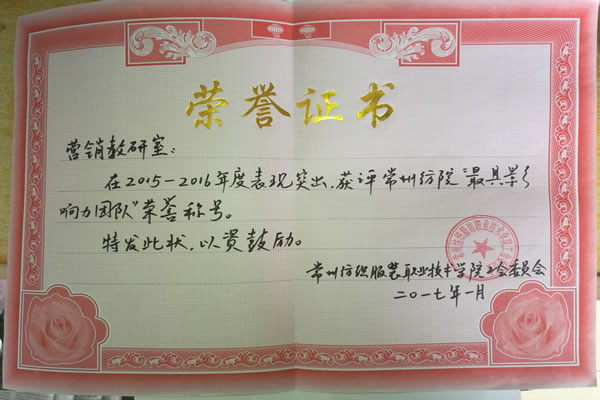 荣誉证书
营销教研室：
在2015-2016年度表现突出，获评常州纺院“最具影
响力团队”荣誉称号。
特发此状，以资鼓励。
常州纺织服装职业技术学院工会委员会
二〇一七年一月